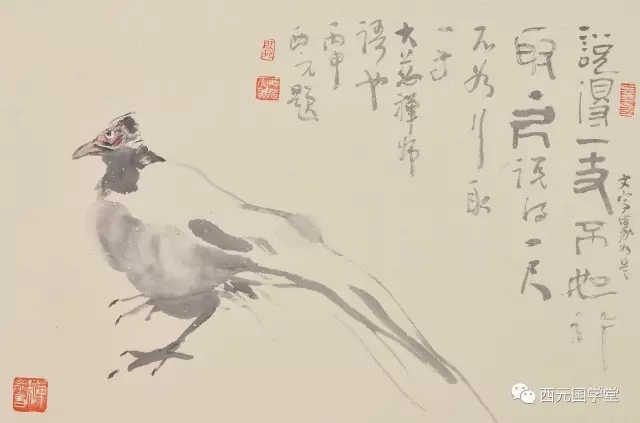 說得一丈不如行
取一尺說得一尺
不如行取
一寸
大慈禪師
語也
丙申
西元題
西元国学堂